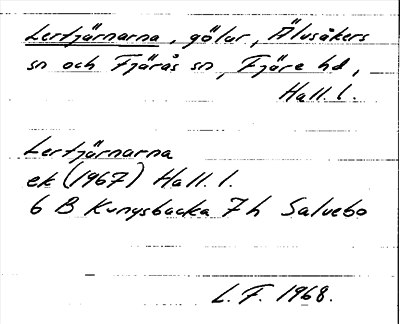 Lertjärnarna, gölar, Älvsåkers
sn och Fjärås sn, Fjäre hd,
Hall. l.
Lertjärnarna
ek (1967) Hall. l.
6 B Kungsbacka 7h Salvebo
L. F. 1968.